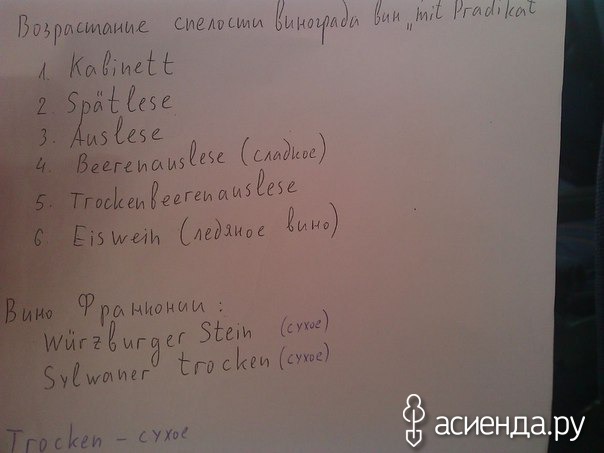 Возрастание спелости винограда вин „mit Prädikat
1. Kabinett
2. Spätlese
3. Auslese
4. Beerenauslese (сладкое)
5. Trockenbeerenauslese
6 Eiswein (ледяное вино)
Вино Франконии:
Würzburger Stein (сухое)
Sylwaner trocken (сухое)
Trocken – сухое
асиенда.ру